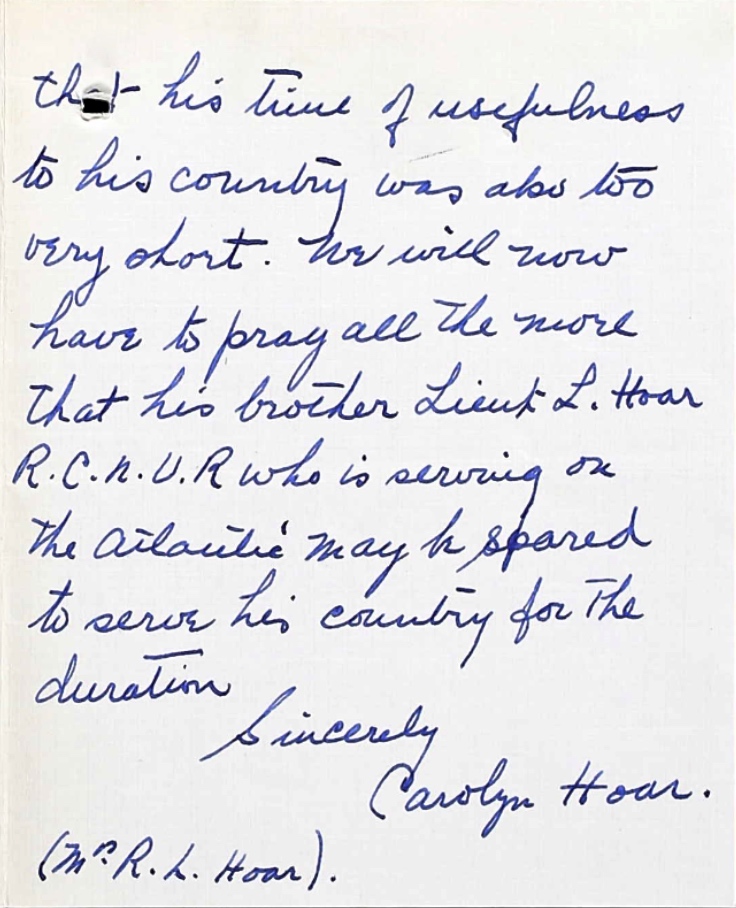 that his time of usefulness
to his country was also too
very short. We will now
have to pray all the more
that his brother Lieut L. Hoar
R.C.N.V.R who is serving on
the Atlantic may be spared
to serve his country for the
duration
Sincerely
Carolyn Hoar.
(Mrs R. L. Hoar).